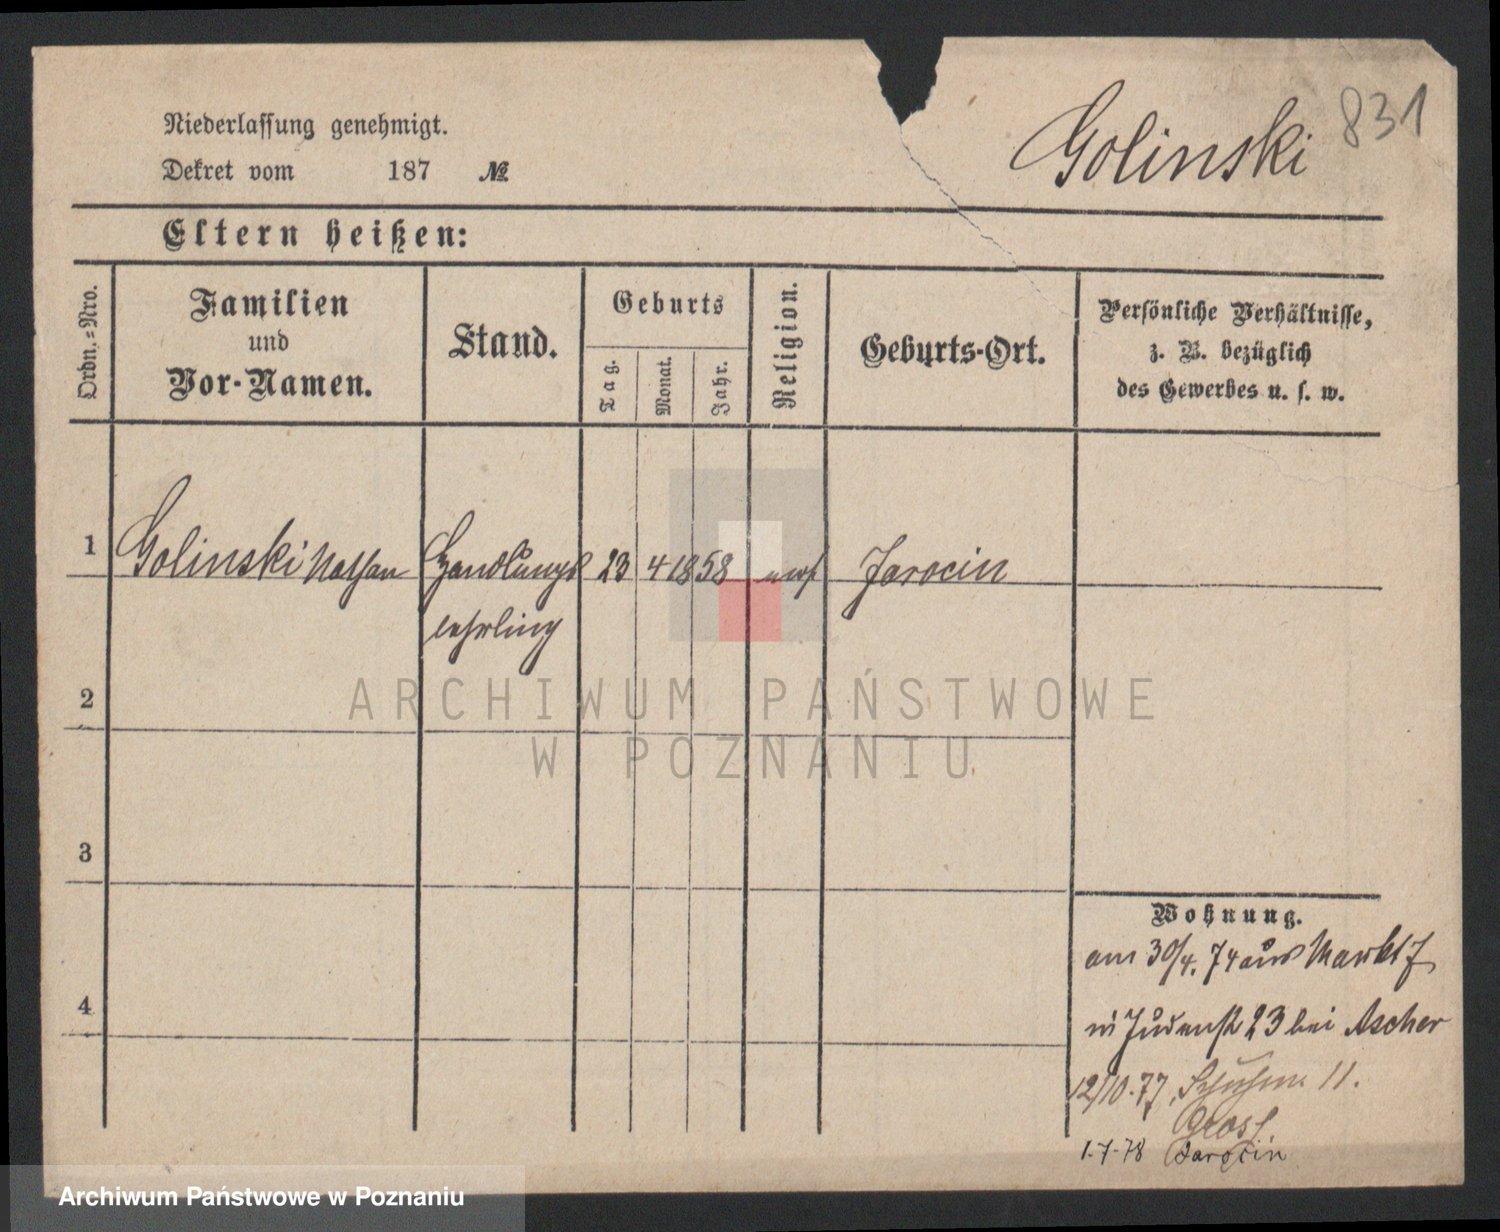 831
Golinski
Niederlassung genehmigt.
Dekret vom 187 №
Eltern heißen:
Ordn.-Nro.
Familien
und
Vor-Namen.
Stand.
Geburts
Tag.
Monat.
Jahr.
Religion.
Geburts-Ort.
Persönliche Verhältnisse,
z. B. bezüglich
des Gewerbes u. s. w.
1 Golinski Nathan Handlungs 23 4 1858 mos Jarocin
lehrling
2
3
4
Wohnung.
am 30/4. 74 aus Markt 7
in Judenstr 23 bei Ascher
12/10.77, 11.
1.7.78 Jarocin
ARCHIWUM PAŃSTWOWE
W POZNANIU
Archiwum Państwowe w Poznaniu